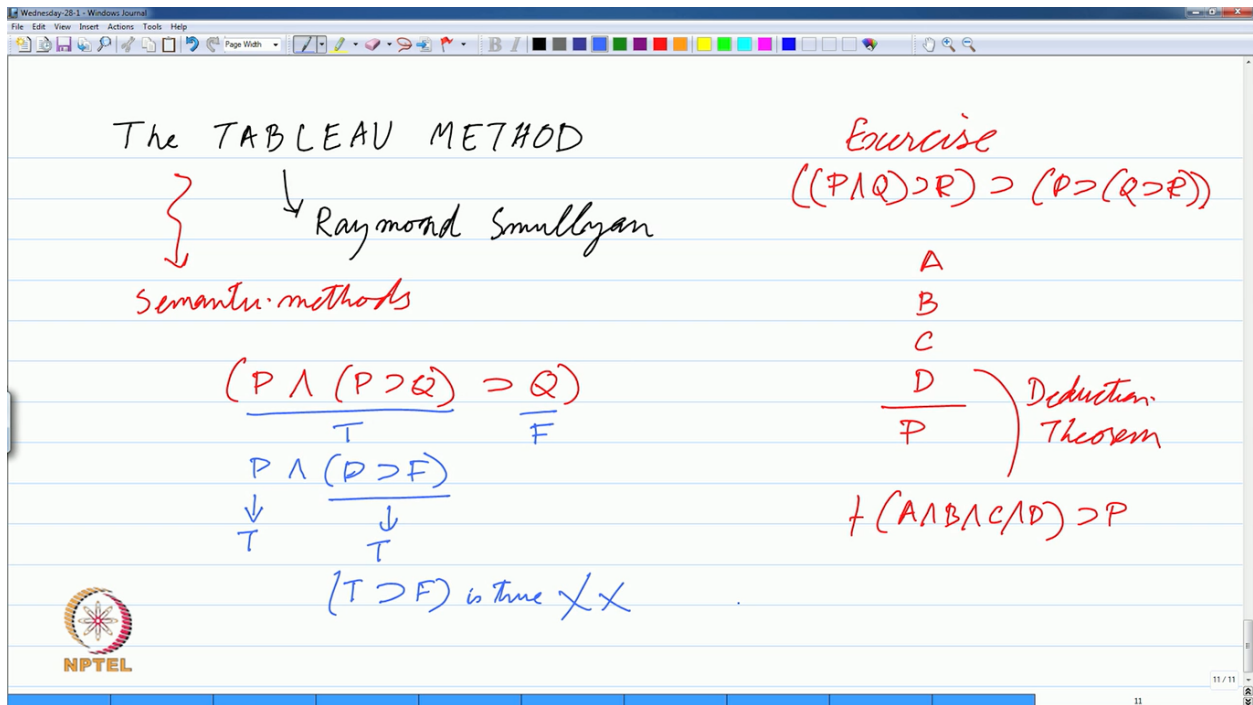 Wednesday-28-1 - Windows Journal
File Edit View Insert Actions Tools Help
Page Width
B I
The TABLEAU METHOD
Raymond Smullyan
Semantic methods
(P ∧ (P ⊃ Q) ⊃ Q)
T F
P ∧ (P ⊃ F)
T T
(T ⊃ F) is true X X
Exercise
((P ∧ Q) ⊃ R) ⊃ (P ⊃ (Q ⊃ R))
A
B
C
D
P
Deduction
Theorem
⊢ (A ∧ B ∧ C ∧ D) ⊃ P
NPTEL
11 / 11
11